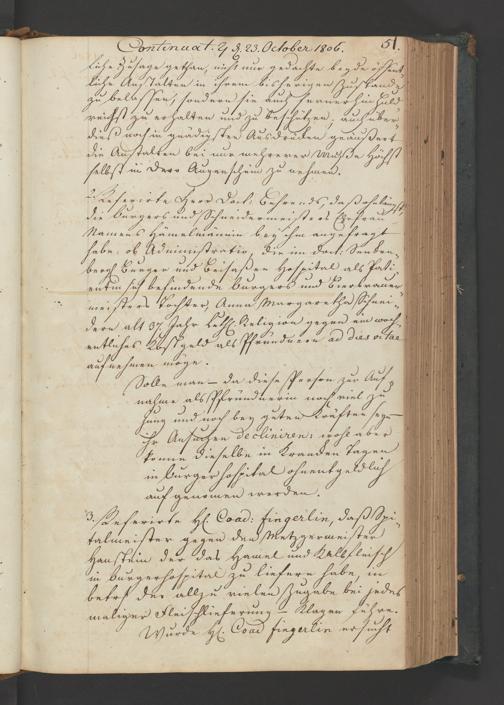 Continuat. 4 d. 23. October 1806. 51.
liche Zusage gethan, nicht nur gedachte beyde öffent-
liche Anstalten in ihrem bisherigen Zustande
zu belassen, sondern sie auch fernerhin huld-
reichst zu erhalten und zu beschützen, auch über-
dies noch in gnädigsten Ausdrücken geäussert
die Anstalten bei nur mehrerer Muße Höchst
selbst in Dero Augenschein zu nehmen.
2. Referirte Herr Doct. Behrends, daß ohnlängst
die Burgers und Schneidermeisters Ehefrau
Namens Hämelmännin bey ihm angefragt
habe, ob Administratio, die im Doct. Senken-
bergl. Burger und Beisaßen Hospital als Pati-
entin sich befindende Burgers und Bierbrauer-
meisters Tochter, Anna Margaretha Schnei-
dern alt 37 Jahr Luth. Religion gegen ein woch-
entliches Kostgeld als Pfründnerin ad dies vitae
aufnehmen möge.
Solle man da diese Person zur Auf-
nahme als Pfründnerin noch viel zu
jung und noch bey guten Kräften seye
ihr Ansuchen decliniren; wohl aber
könne dieselbe in kranken Tagen
in Burgerhospital ohnentgeldlich
aufgenomen werden.
3. Referirte H. Coad. Fingerlin, daß Spi-
talmeister gegen den Metzgermeister
Hanstein der das Hamel und Kalbfleisch
in Burgerhospital zu liefern habe, in
betref der allzu vielen Zugabe bei jedes
maliger Fleischlieferung Klagen führe.
Wurde H. Coad Fingerlin ersucht